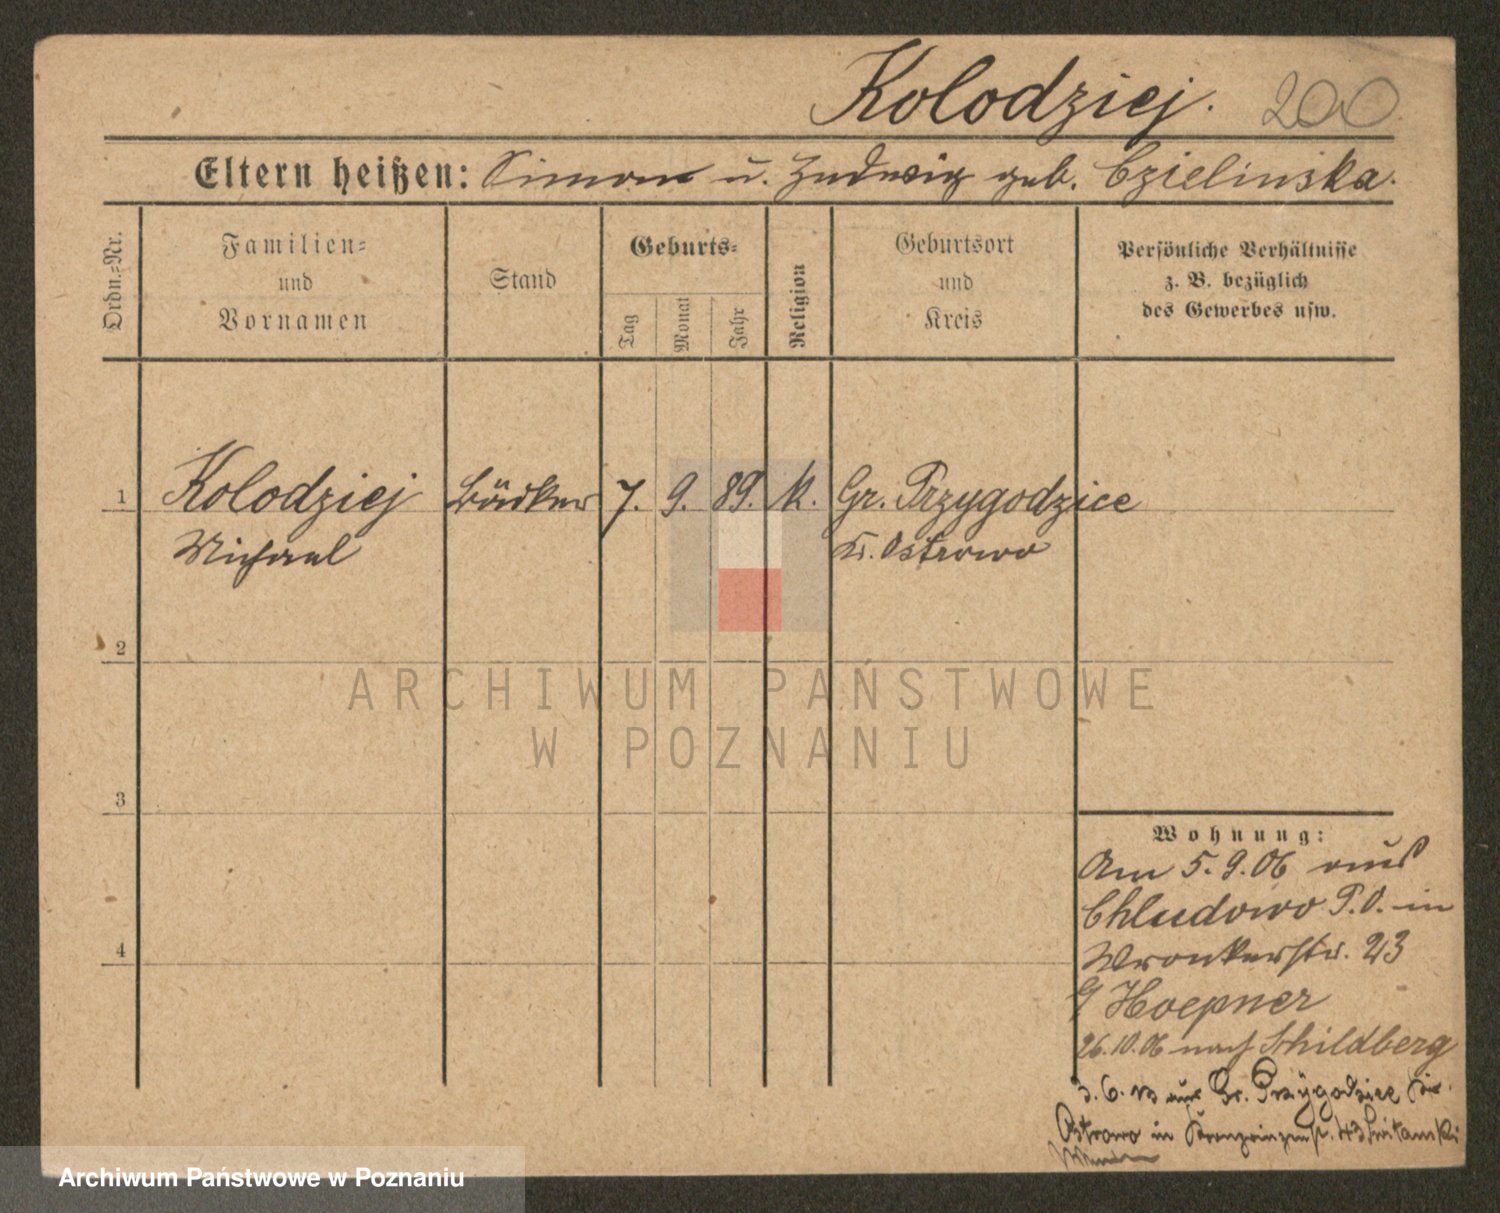 Kolodziej. 200
Eltern heißen: Simon u. Hedwig geb. Czielinska.
Ordn.-Nr.
Familien-
und
Vornamen
Stand
Geburts-
Tag
Monat
Jahr
Religion
Geburtsort
und
Kreis
Persönliche Verhältnisse
z. B. bezüglich
des Gewerbes usw.
1 Kolodziej Bäcker 7. 9. 89. k. Gr. Przygodzice
Michael Kr. Ostrowo
2
ARCHIWUM PAŃSTWOWE
W POZNANIU
3
Wohnung:
Am 5.9.06 aus
Chludowo P.O. in
4
Wronkerstr. 23
Hoepner
26.10.06 nach Schildberg
3.6. aus Gr. Przygodzice Kr.
Ostrowo in Kronprinzenstr. 43
Archiwum Państwowe w Poznaniu